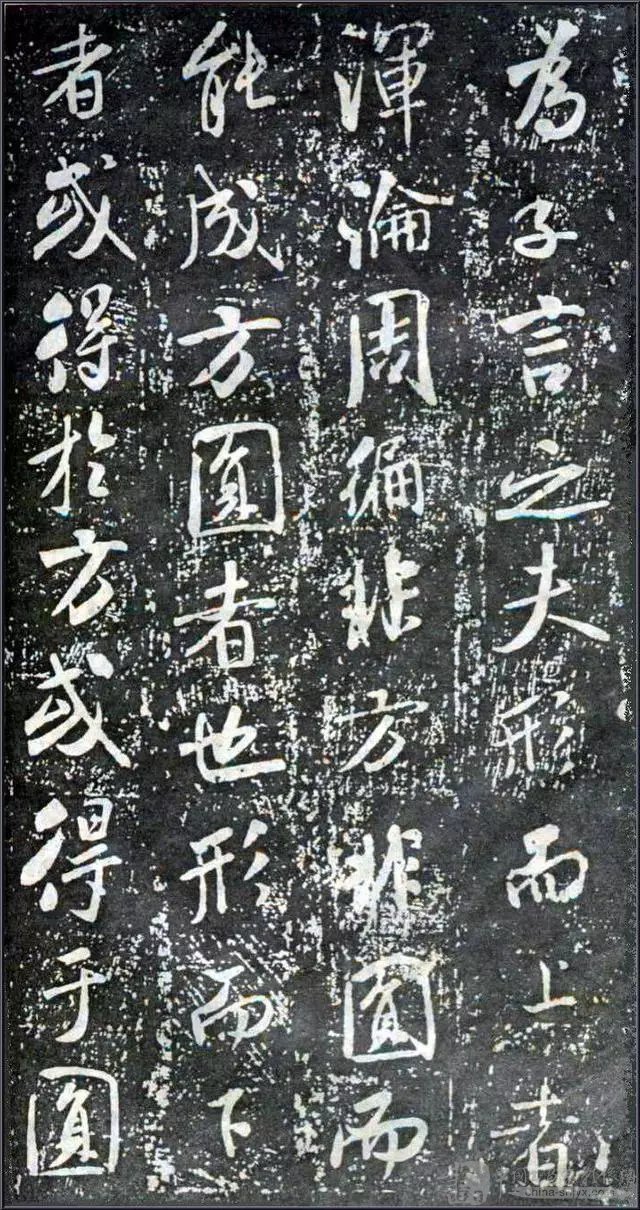 為子言之夫形而上者
渾淪周徧非方非圓而
能成方圓者也形而下
者或得於方或得于圓
china-shfyx.com